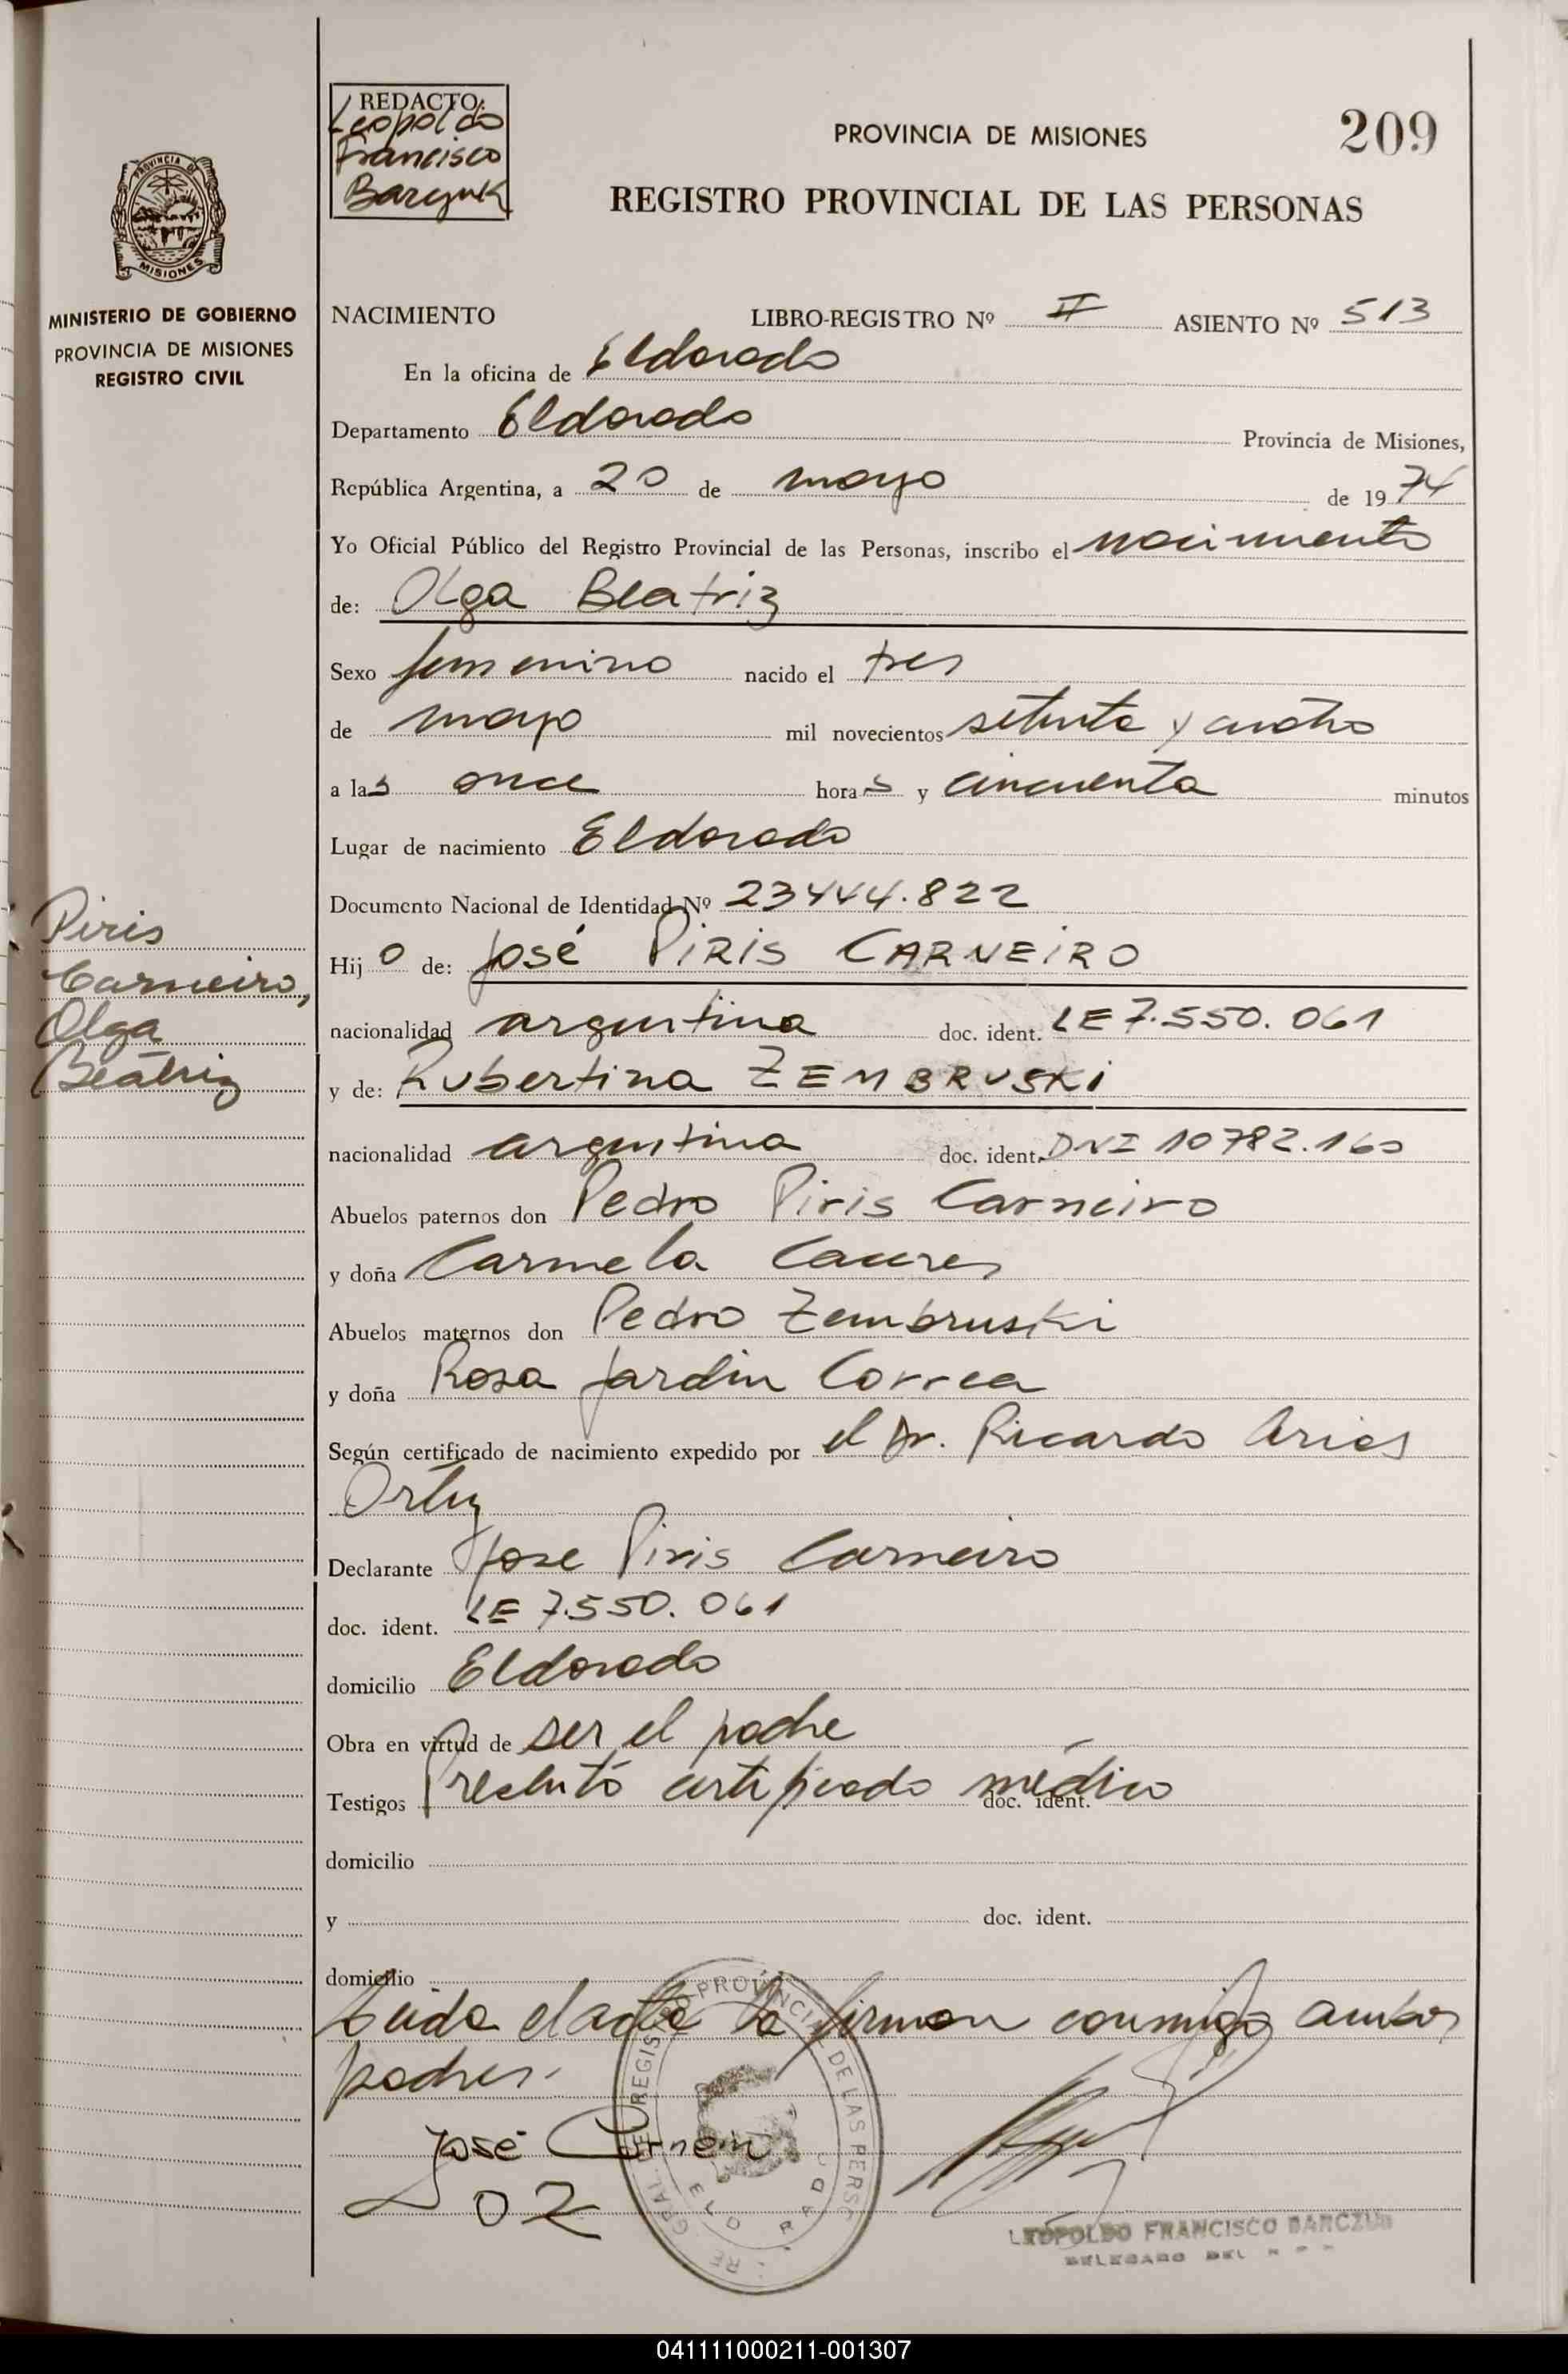 REDACTO:
Leopoldo
Francisco
PROVINCIA DE MISIONES
209
REGISTRO PROVINCIAL DE LAS PERSONAS
PROVINCIA DE
MISIONES
MINISTERIO DE GOBIERNO
PROVINCIA DE MISIONES
REGISTRO CIVIL
NACIMIENTO LIBRO-REGISTRO Nº II ASIENTO Nº 513
En la oficina de Eldorado
Departamento Eldorado Provincia de Misiones,
República Argentina, a 20 de mayo de 19 74
Yo Oficial Público del Registro Provincial de las Personas, inscribo el nacimiento
de: Olga Beatriz
Sexo femenino nacido el tres
de mayo mil novecientos setenta y cuatro
a las once horas y cincuenta minutos
Lugar de nacimiento Eldorado
Documento Nacional de Identidad Nº 23444.822
Piris
Carneiro,
Olga
Beatriz
Hij o de: José PIRIS CARNEIRO
nacionalidad argentina doc. ident. LE 7.550.061
y de: Rubertina ZEMBRUSKi
nacionalidad argentina doc. ident. DNI 10782.160
Abuelos paternos don Pedro Piris Carneiro
y doña Carmela Caures
Abuelos maternos don Pedro Zembruski
y doña Rosa Jardin Correa
Según certificado de nacimiento expedido por el Dr. Ricardo Arias
Ortiz
Declarante Jose Piris Carneiro
doc. ident. LE 7.550.061
domicilio Eldorado
Obra en virtud de ser el padre
Testigos Presentó certificado médico doc. ident.
domicilio
y doc. ident.
domicilio
Leida el acta la firman conmigo ambos
padres.
José
OZ
REGISTRO PROVINCIAL DE LAS PERSO
LEOPOLDO FRANCISCO
DELEGADO DEL
041111000211-001307